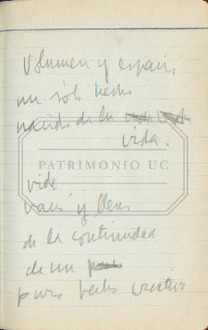 Volumen y espacio
un sólo hecho
nacido de la
vida.
PATRIMONIO UC
vide
vacío y lleno
de la continuidad
de un
puro hecho creativo